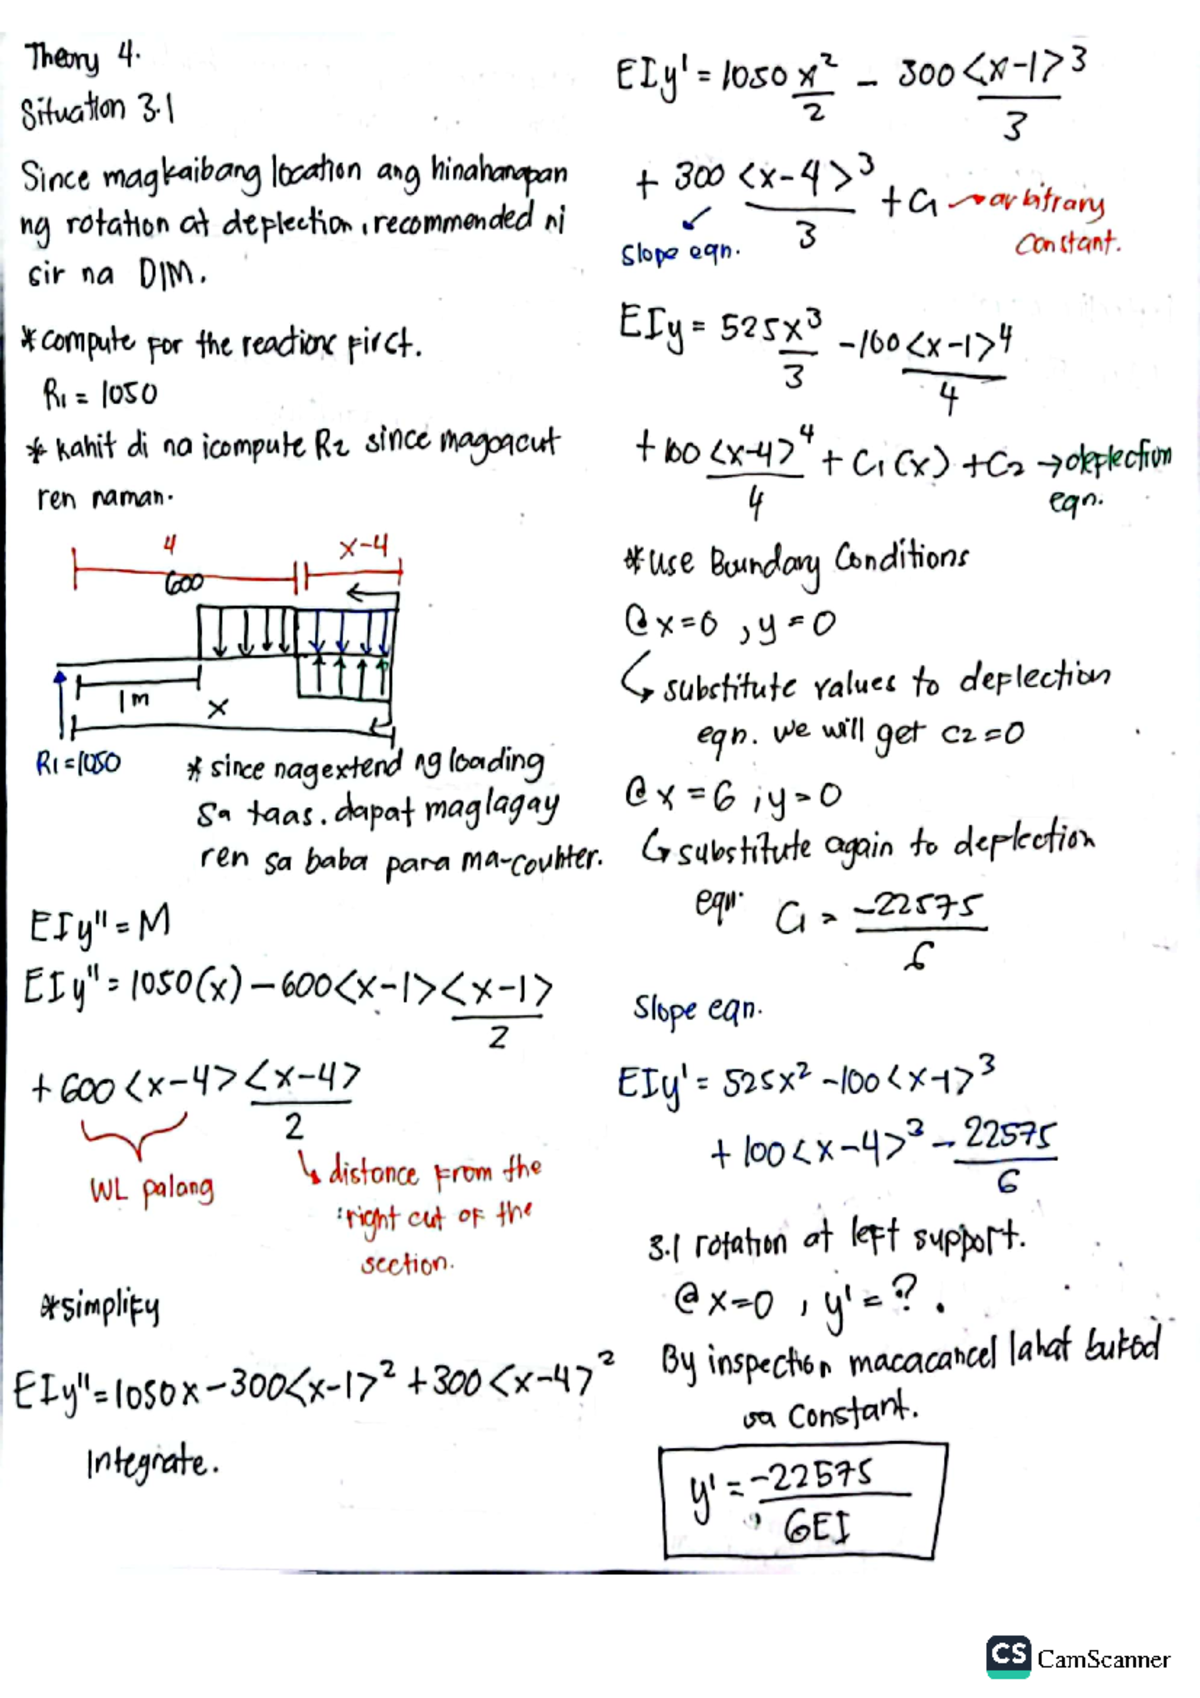 Theory 4.
Situation 3.1
Since magkaibang location ang hinahanapan
ng rotation at deplection, recommended ni
sir na DIM.
*compute for the reactions first.
R1 = 1050
* kahit di na icompute R2 since magoqcut
ren naman.
4
x-4
600
1m
x
R1=1050
* since nagextend ng loading
sa taas. dapat maglagay
ren sa baba para ma-counter.
EIy" = M
EIy" = 1050(x) - 600<x-1><x-1>
2
+ 600 <x-4> <x-4>
2
WL palang
distance from the
right cut of the
section.
*simplify
EIy" = 1050x - 300<x-1>² + 300<x-4>²
Integrate.
EIy' = 1050 x² - 300 <x-1>3
2
3
+ 300 <x-4>³ + C1 → arbitrary
3
Constant.
Slope eqn.
EIy = 525x³ - 100<x-1>4
3
4
+ 100 <x-4>4 + C1(x) + C2 → deplection
4
eqn.
*Use Boundary Conditions
@ x=0 , y=0
↳ substitute values to deplection
eqn. we will get C2=0
@ x = 6 ; y=0
↳ substitute again to deplection
eqn. C1 = -22575
6
Slope eqn.
EIy' = 525x² - 100<x-1>³
+ 100<x-4>³ - 22575
6
3.1 rotation at left support.
@ x=0 , y' = ? .
By inspection macacancel lahat bukod
sa Constant.
y' = -22575
6EI
CS CamScanner